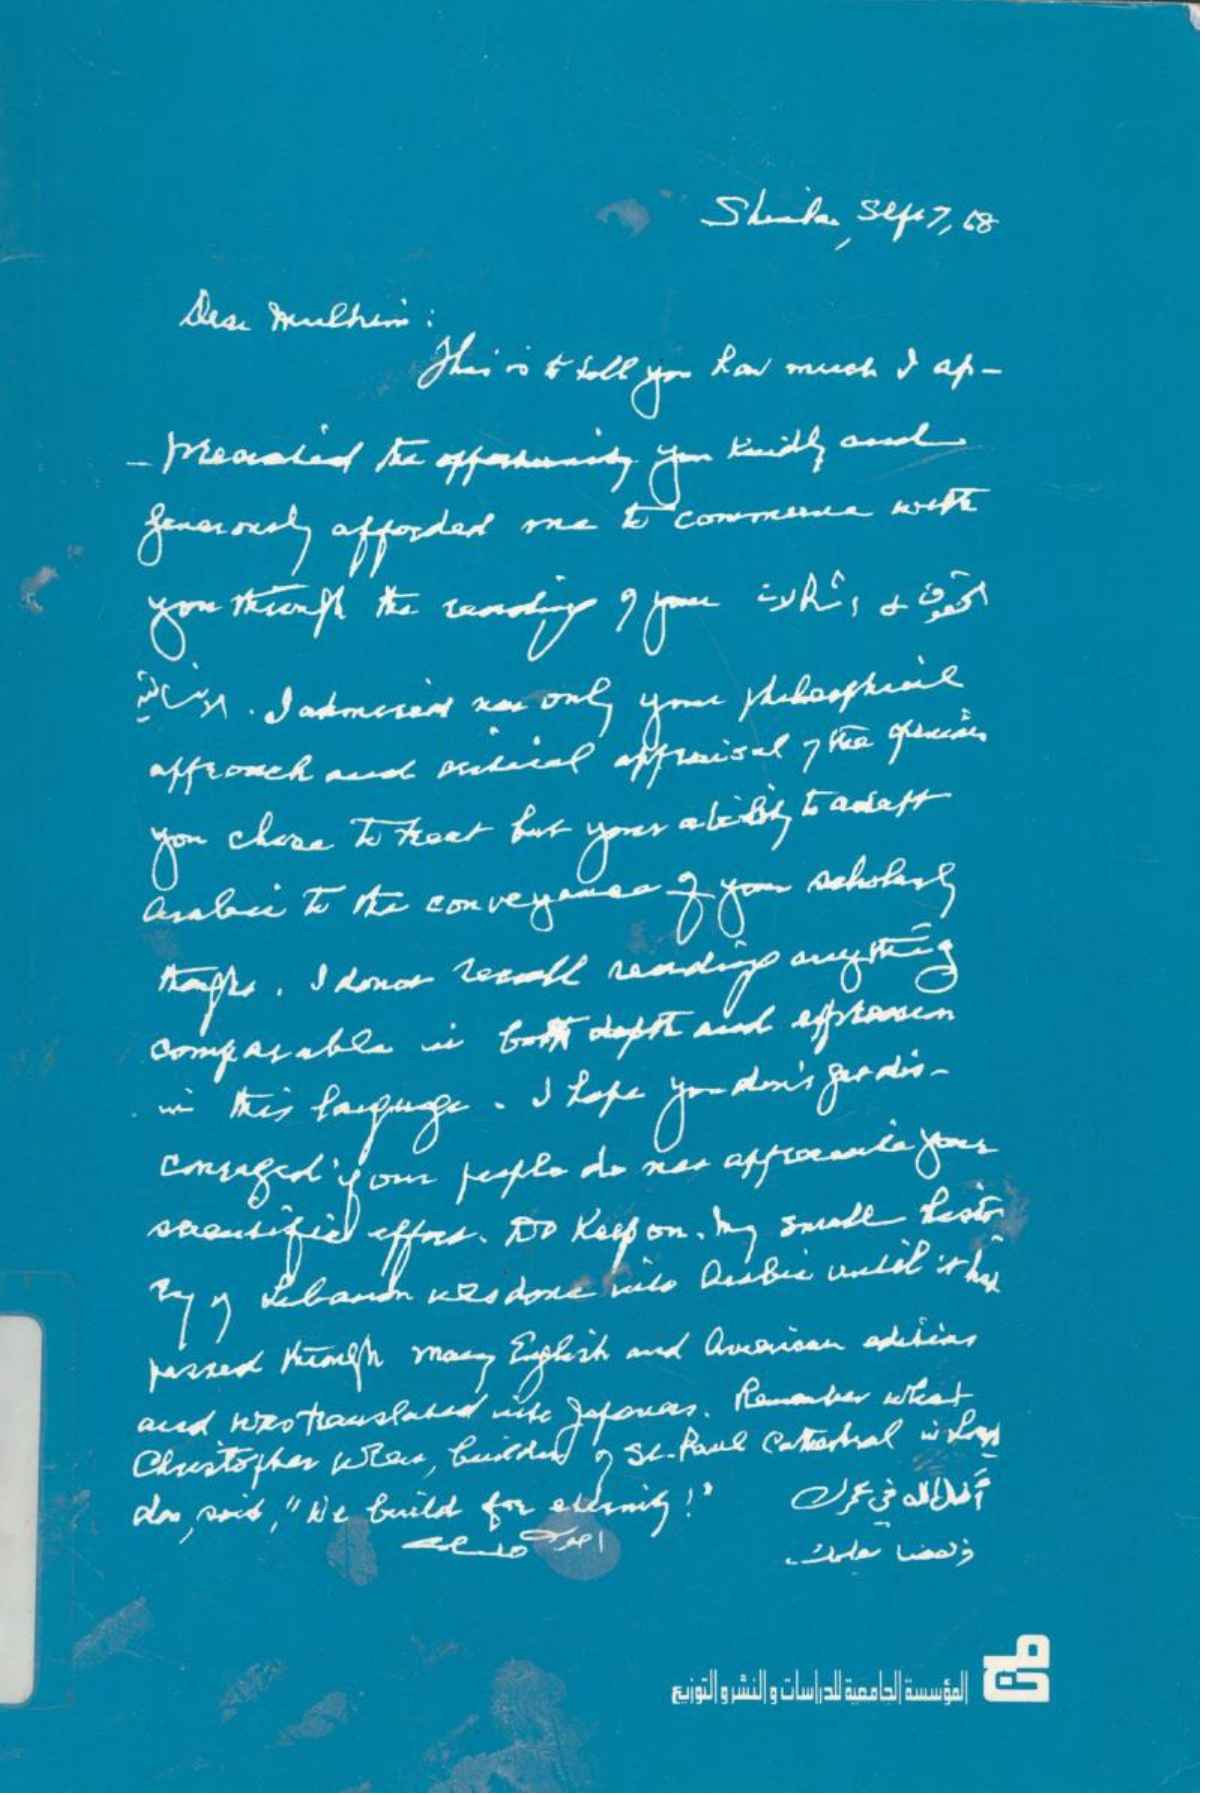 Sept 7, 68
Dear Mulhim:
This is to tell you how much I ap-
- preciated the opportunity you kindly and
generously afforded me to commerce with
you through the reading of your
. I admired not only your philosophical
approach and critical appraisal of the geniuses
you chose to treat but your ability to adapt
Arabic to the conveyance of your scholarly
thoughts. I do not recall reading anything
comparable in both depth and expression
in this language. I hope you don't get dis-
couraged if our people do not appreciate your
scientific effort. Do keep on. My small histo-
ry of Lebanon was done into Arabic until it had
passed through many English and American editions
and was translated into Japanese. Remember what
Christopher Wren, builder of St. Paul Cathedral in Lon
don, said, "We build for eternity!"
أطال الله في عمرك
ونفعنا بعلومك
المؤسسة الجامعية للدراسات و النشر و التوزيع